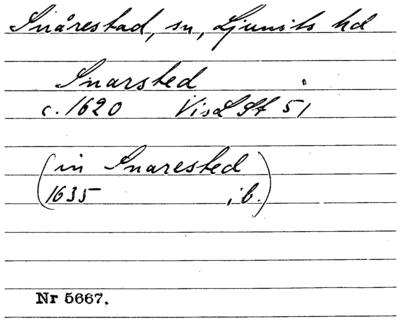 Snårestad, sn, Ljunits hd
Snarsted
c. 1620 VisLSt 51
(in Snarested
1635 ib.)
Nr 5667.